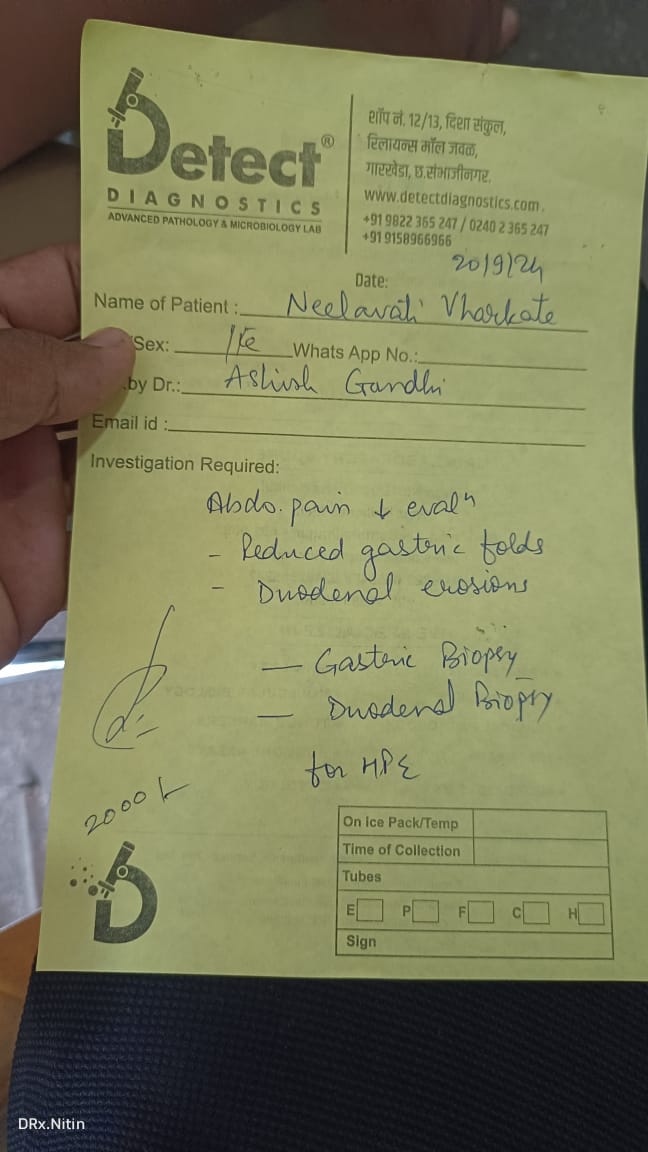 Detect®
DIAGNOSTICS
ADVANCED PATHOLOGY & MICROBIOLOGY LAB
शॉप नं. 12/13, दिशा संकुल,
रिलायन्स मॉल जवळ,
गारखेडा, छ.संभाजीनगर.
www.detectdiagnostics.com.
+91 9822 365 247 / 0240 2 365 247
+91 9158966966
Date: 20/9/24
Name of Patient : Neelavati Vharkate
/Sex: /Fe Whats App No.:
.by Dr.: Ashish Gandhi
Email id :
Investigation Required:
Abdo. pain ↓ evalⁿ
- Reduced gastric folds
- Duodenal erosions
— Gastric Biopsy
— Duodenal Biopsy
for HPE
2000
On Ice Pack/Temp
Time of Collection
Tubes
E P F C H
Sign
DRx.Nitin